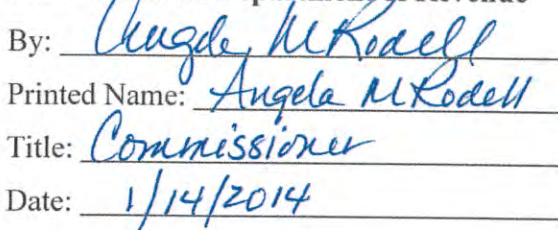 Revenue
By: Angela M Rodell
Printed Name: Angela M Rodell
Title: Commissioner
Date: 1/14/2014